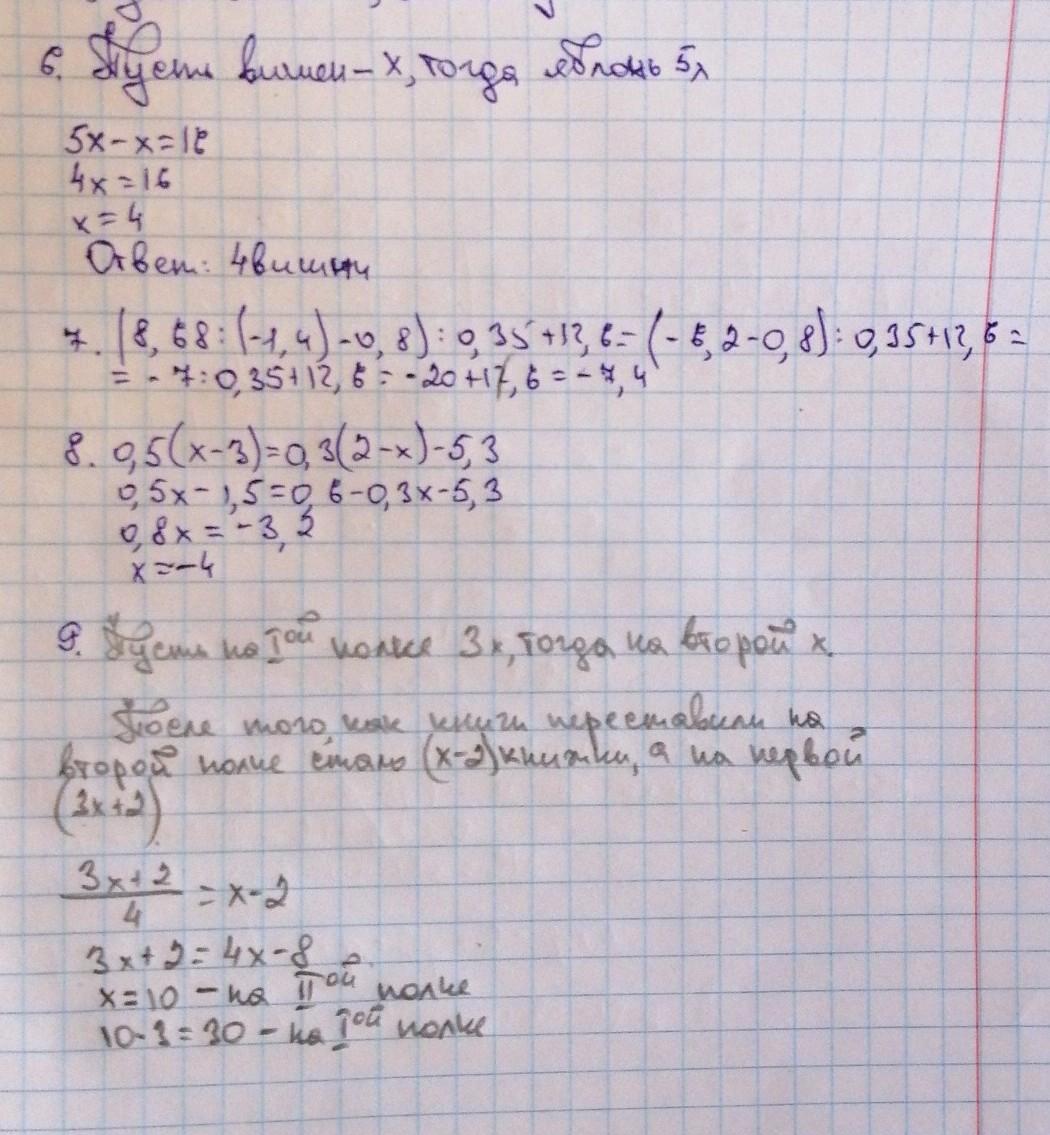 6. Пусть вишен – x, тогда яблонь 5x
5x – x = 16
4x = 16
x = 4
Ответ: 4 вишни
7. (8,68 : (-1,4) - 0,8) : 0,35 + 12,6 = (-6,2 - 0,8) : 0,35 + 12,6 =
= - 7 : 0,35 + 12,6 = -20 + 12,6 = -7,4
8. 0,5(x-3) = 0,3(2-x) - 5,3
0,5x - 1,5 = 0,6 - 0,3x - 5,3
0,8x = -3,2
x = -4
9. Пусть на I ой полке 3x, тогда на второй x.
После того, как книги переставили на
второй полке стало (x-2) книжки, а на первой
(3x+2).
3x+2
/4 = x-2
3x+2 = 4x-8
x = 10 – на II ой полке
10·3 = 30 – на I ой полке